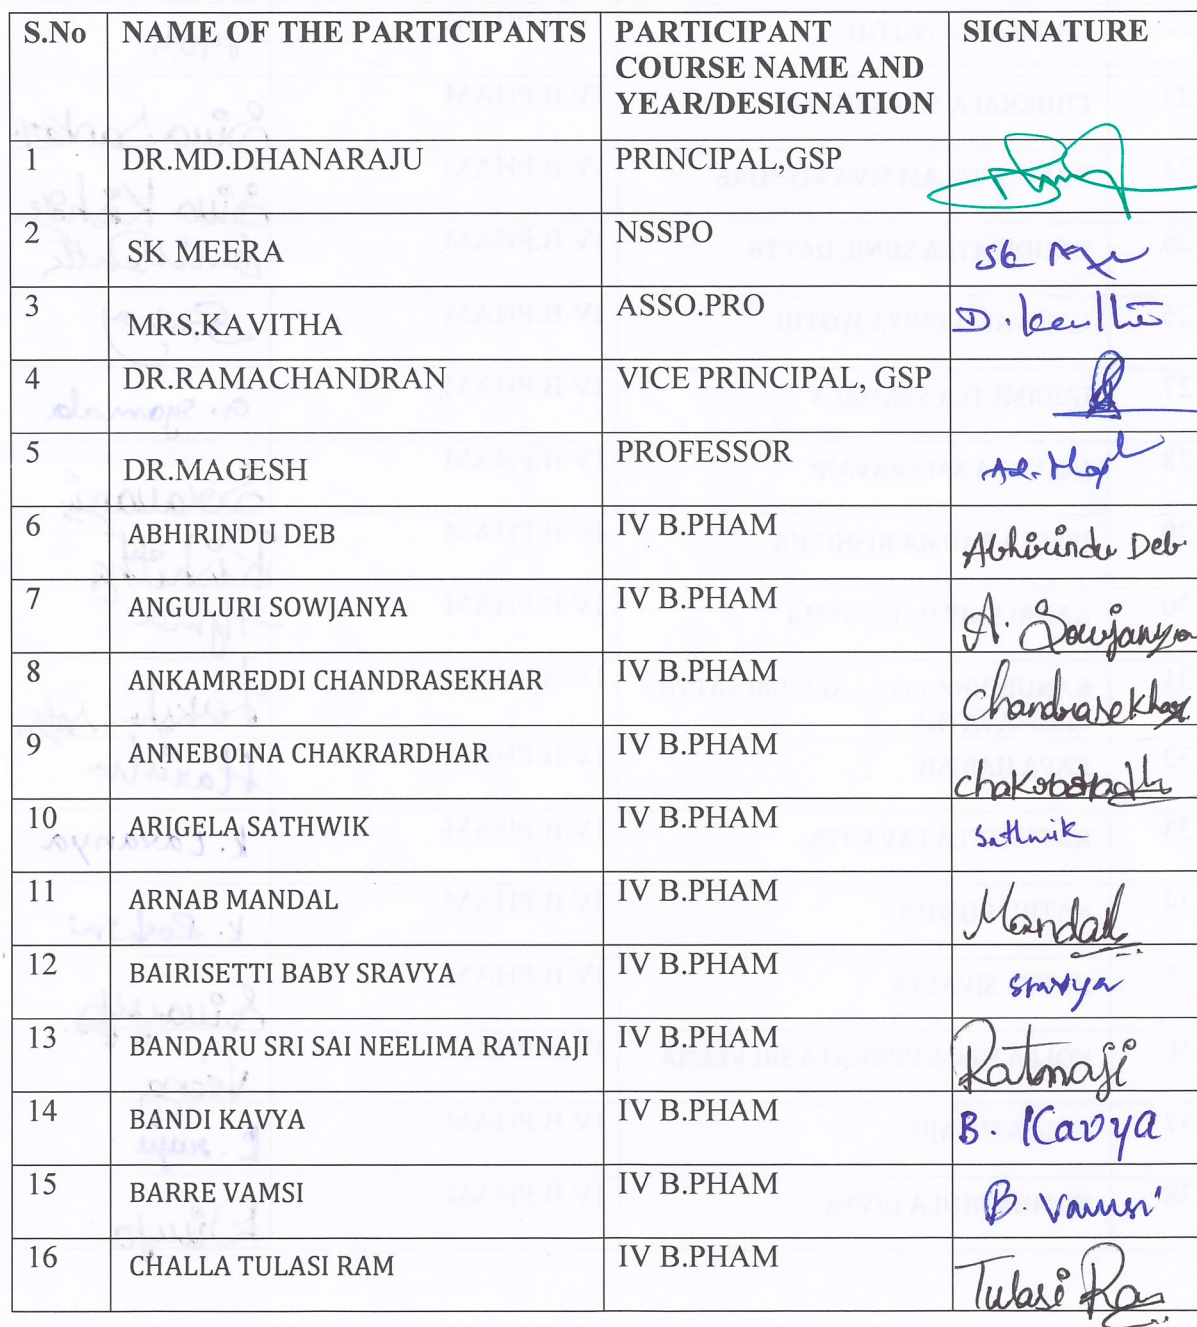 S.No NAME OF THE PARTICIPANTS PARTICIPANT COURSE NAME AND YEAR/DESIGNATION SIGNATURE
1 DR.MD.DHANARAJU PRINCIPAL,GSP
2 SK MEERA NSSPO SK
3 MRS.KAVITHA ASSO.PRO D.
4 DR.RAMACHANDRAN VICE PRINCIPAL, GSP
5 DR.MAGESH PROFESSOR
6 ABHIRINDU DEB IV B.PHAM Abhirindu Deb
7 ANGULURI SOWJANYA IV B.PHAM A. Sowjanya
8 ANKAMREDDI CHANDRASEKHAR IV B.PHAM Chandrasekhar
9 ANNEBOINA CHAKRARDHAR IV B.PHAM
10 ARIGELA SATHWIK IV B.PHAM Sathwik
11 ARNAB MANDAL IV B.PHAM Mandal
12 BAIRISETTI BABY SRAVYA IV B.PHAM Sravya
13 BANDARU SRI SAI NEELIMA RATNAJI IV B.PHAM Ratnaji
14 BANDI KAVYA IV B.PHAM B. Kavya
15 BARRE VAMSI IV B.PHAM B. Vamsi
16 CHALLA TULASI RAM IV B.PHAM Tulasi Ram